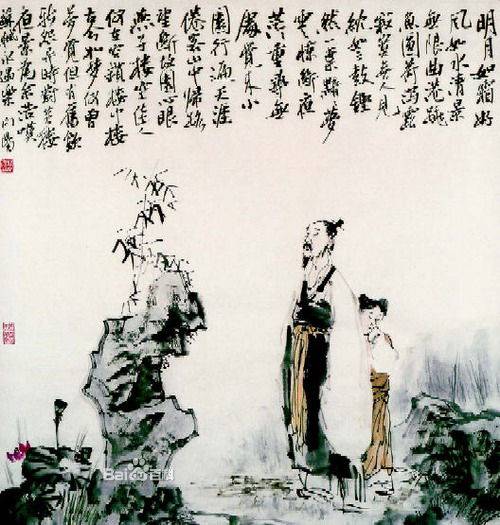 明月如霜好
风如水清景
無限曲港跳
魚圓荷瀉露
寂寞無人見
紞如三鼓鏗
然一葉黯夢
雲驚斷夜
茫茫重尋無
處覺來小
園行遍天涯
倦客山中歸路
望斷故園心眼
燕子樓空佳人
何在空鎖樓中燕
古今如夢何曾
夢覺但有舊歡
新怨異時對黃樓
夜景為余浩嘆
蘇軾永遇樂
Bai百科